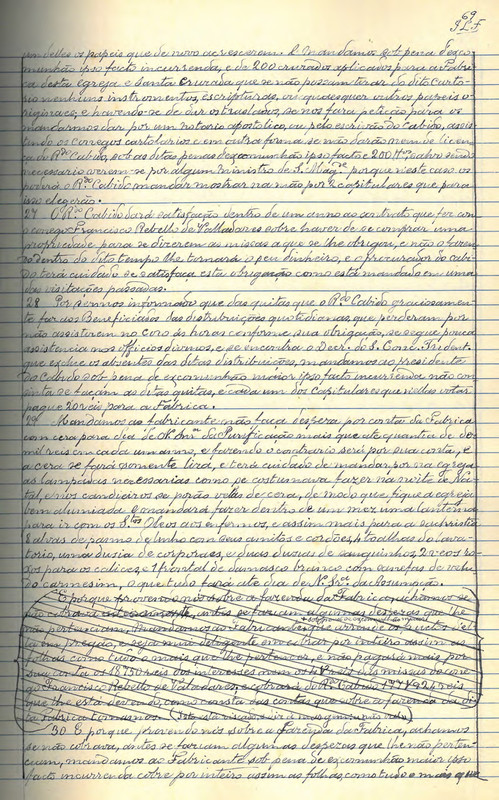 69
um delles os papeis que de novo acrescerem. E mandamos sob pena d'exco
munhão ipso facto incurrenda, e de 200 cruzados applicados para a Fabri
ca desta Egreja e Santa Cruzada que se não possam tirar do dito Carto
rio nenhuns instromentos, escripturas, ou quaesquer outros papeis o
riginaes, e havendo-se de dar os traslados, se nos fara petição para os
mandarmos dar por um notario apostolico, ou pelo escrivão do Cabido, assis
tindo os conegos cartolarios e em outra forma se não darão nem de licen
ça do R.do Cabido, sob as ditas penas de excomunhão ipso facto e 200
necessario verem-se por algum ministro de S. Mag.de porque neste caso os
poderá o R.do Cabido mandar mostrar na mão por 2 capitulares que para
isso elegerão.
27 O R.do Cabido dará satisfação dentro de um anno ao contrato que fez com
o conego Francisco Rebello de Valladares sobre haver de se comprar uma
propriedade para se dizerem as missas a que se lhe obrigou, e não o fazen
do dentro do dito tempo lhe tornará o seu dinheiro, e o procurador do cabi
do terá cuidado se satisfaça esta obrigação como está mandado em uma
das visitações passadas.
28 Por sermos informado que das quitas que o R.do Cabido graciosamen
te faz aos Beneficiados das distribuições quotidianas, que perderam por
não assistirem no Coro ás horas conforme sua obrigação, se segue pouca
assistencia nos officios divinos, e se encontra o Decr. do S. Conc. Trident.
que exclue os absentes das ditas distribuições, mandamos ao presidente
do Cabido sob pena de excomunhão maior ipso facto incurrenda não con
sinta se façam as ditas quitas, e cada um dos capitulares que nellas votar
pague 20 reis para a Fabrica.
29 Mandamos ao fabricante não faça despeza por conta da Fabrica
com cera para dia de N. Snr.a da Purificação mais que até quantia de do
mil reis em cada um anno, e fazendo o contrario será por sua conta, e
a cera se fará somente lisa, e terá cuidado de mandar por na egreja
as lampadas necessarias como se costumava fazer na noite de Na
tal, e nos candieiros se porão velas de cera, de modo que fique a egreja
bem alumiada e mandará fazer dentro de um mez uma lanterna
para ir com os S.tos Oleos aos enfermos, e assim mais para a sachristia
8 alvas de panno de linho com seus amitos e cordões, 4 toalhas do lava
torio, uma dusia de corporaes, e duas dusias de sanguinhos, 2 veos ro
xos para os calices, e 1 frontal de damasco branco com sanefas de velu
do carmesim, o que tudo fará até dia de N. Sr.a da Assumpção.
E porque provendo nós sobre a fazenda da Fabrica, achamos se
não cobrava, antes se faziam algumas despezas que lhe
não pertenciam, mandamos ao Fabricante
em prejuizo, e seja mui deligente em cobrar por inteiro assim as
folhas como tudo o mais que lhe pertencer, e não pagará mais por
sua conta os 18750 reis dos interesses nem os das missas do cone
go Francisco Rebello de Valladares, e cobrará do R.do Cabido reis
que lhe está devendo, como consta das contas que sobre a fazenda da di
ta fabrica tomamos. (Isto está riscado
30. E porque, provendo nós sobre a fazenda da Fabrica, achamos
se não cobrava, antes se faziam algumas despezas que lhe não perten
ciam, mandamos ao Fabricante sob pena de excomunhão maior ipso
facto incurrenda cobre por inteiro assim as folhas, como tudo o mais que